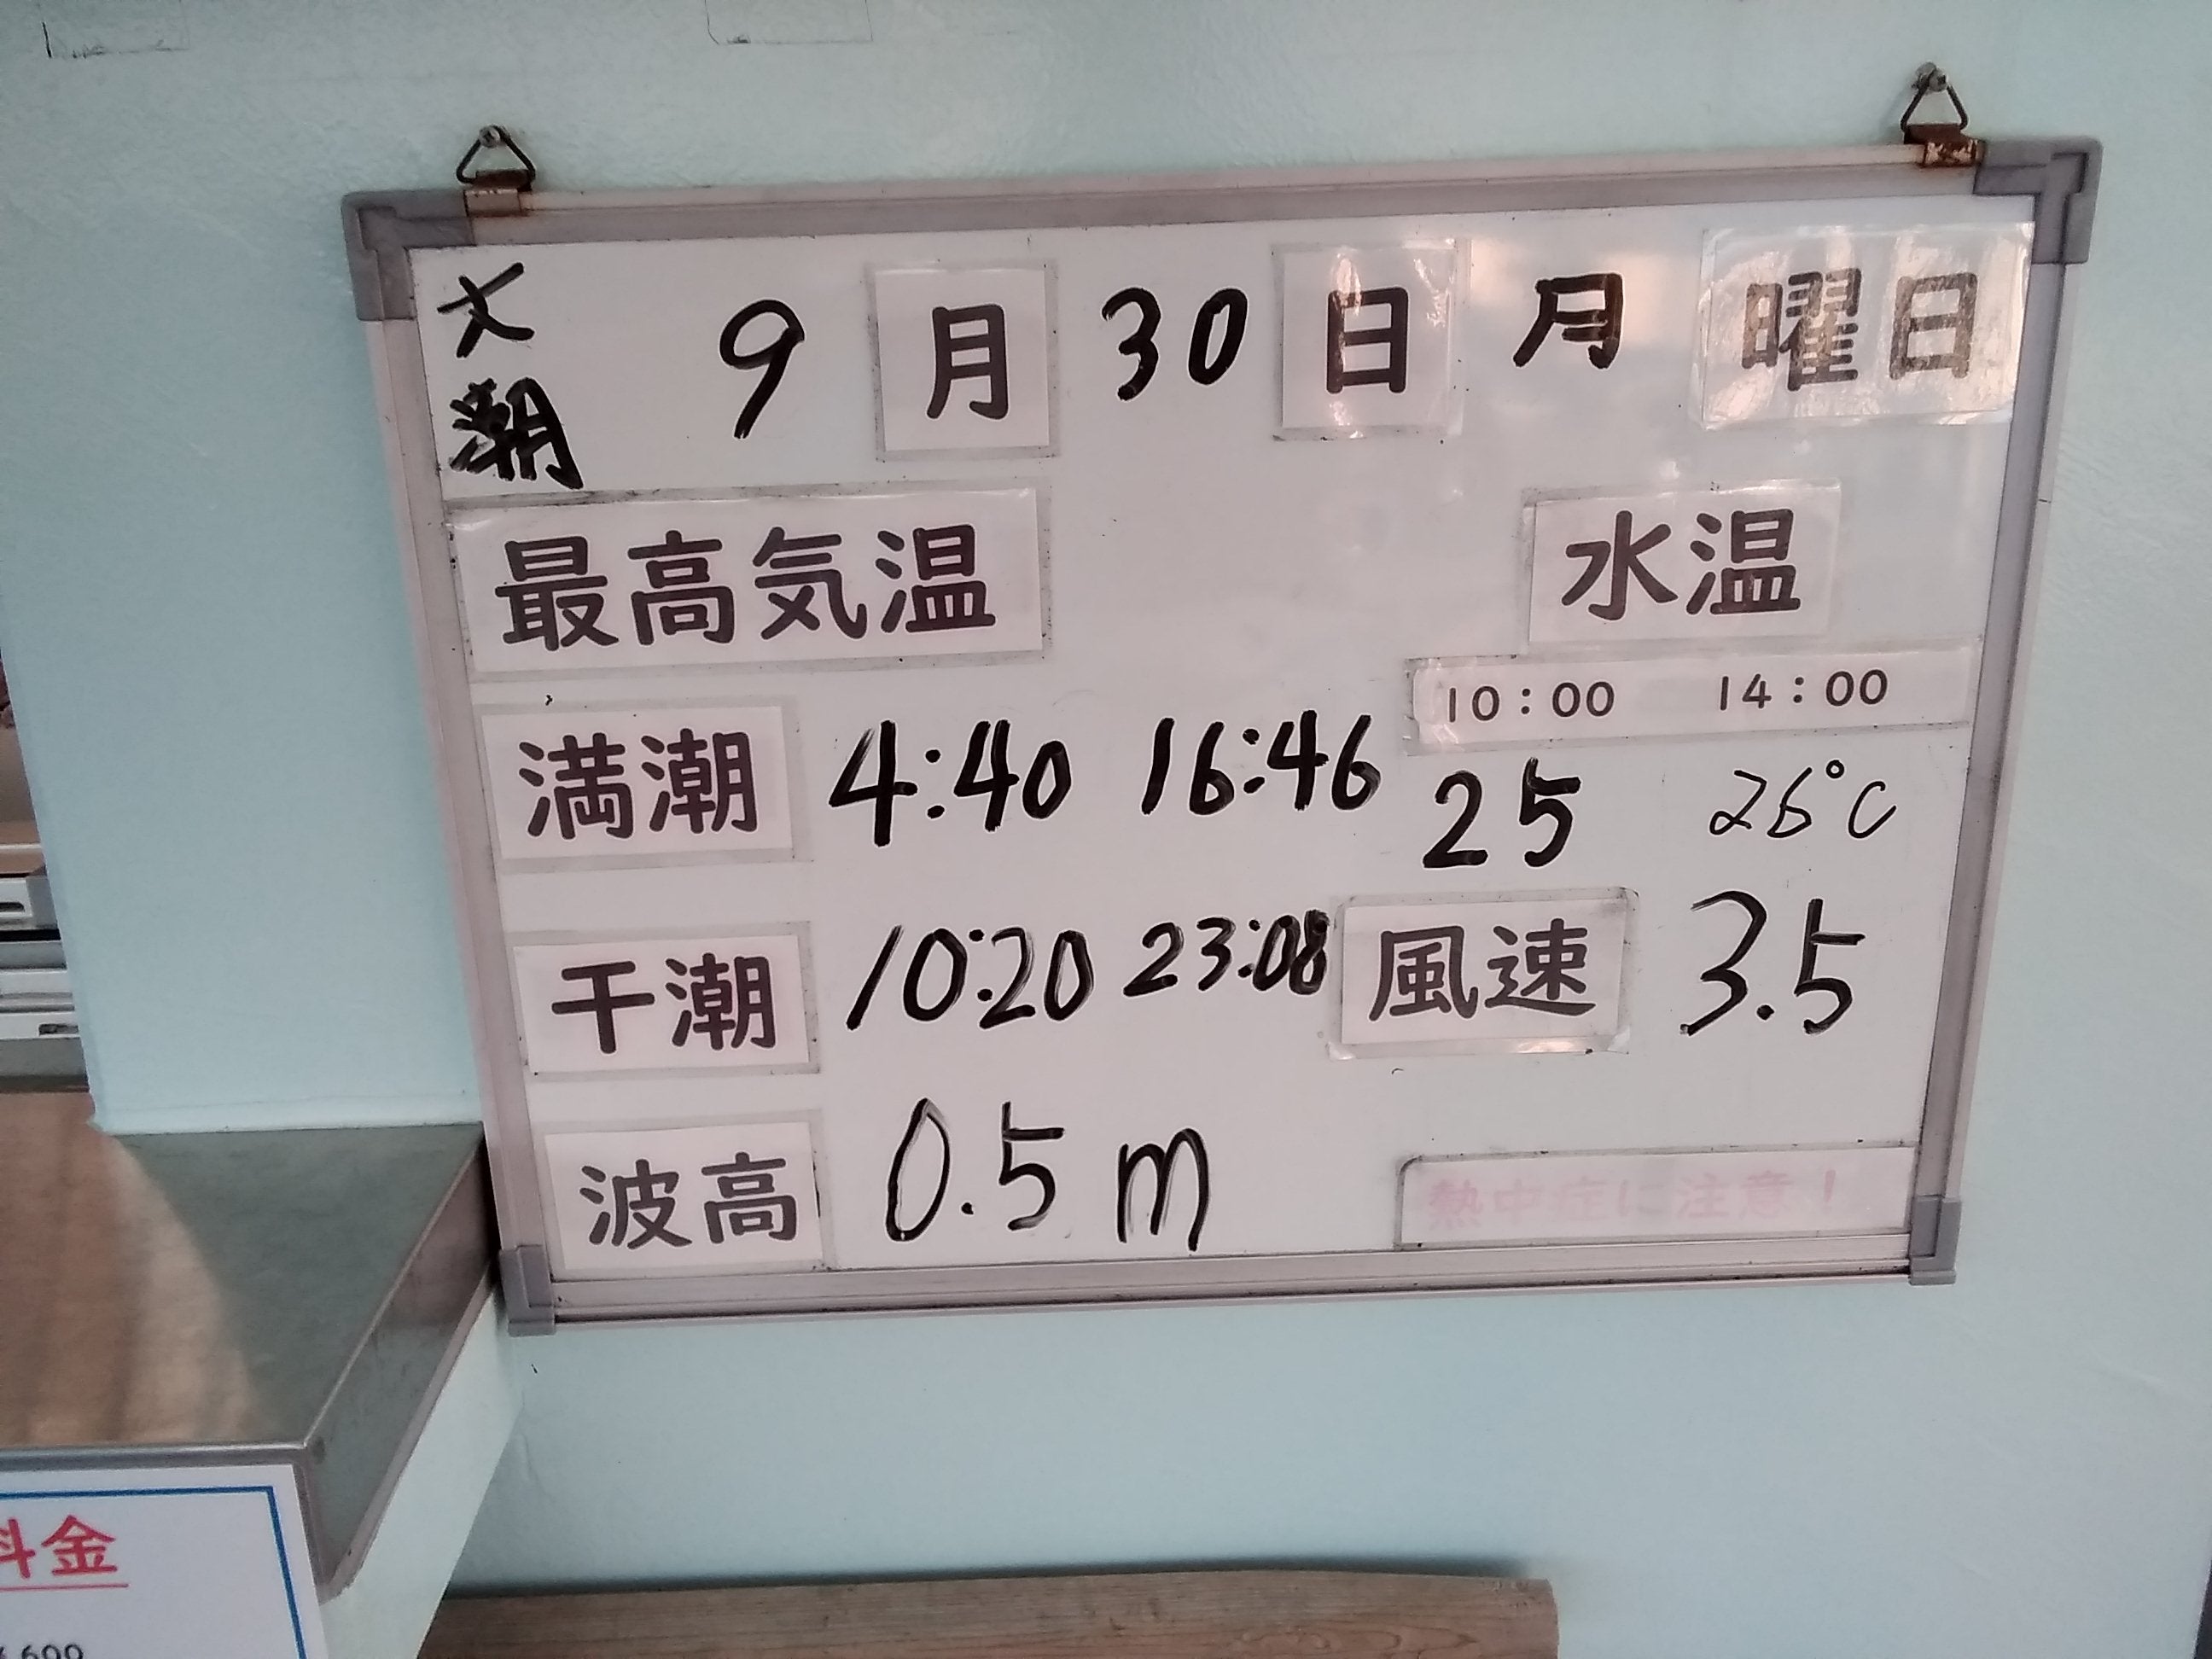 大潮 9月30日 月曜日
最高気温 水温
10:00 14:00
満潮 4:40 16:46 25 26℃
干潮 10:20 23:08 風速 3.5
波高 0.5m
熱中症に注意!
料金